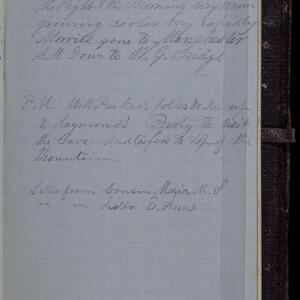 the Night & the Morning very warm
growing cooler very rapidly
Morrill gone to Manchester
A.M. down to W. G. Bridge
P.M. With Parker's folks &c up
to Raymonds to visit
the Cave. And a few to top of the
Mountain.
Letter from Cousin Maria M. S
" " Sister E. Anne.